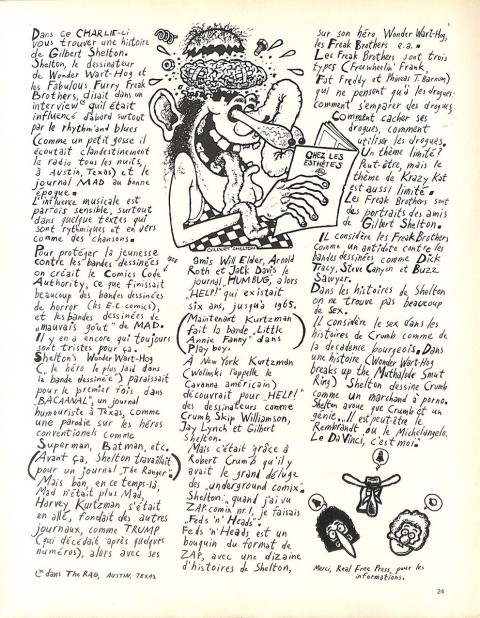 Dans ce CHARLIE-ci
vous trouver une histoire
de Gilbert Shelton.
Shelton, le dessinateur
de Wonder Wart-Hog et
les Fabulous Furry Freak
Brothers, disait dans un
interview* qu'il était
influencé d'abord surtout
par le rhythm'and blues
(comme un petit gosse il
écoutait clandestinement
le radio tous les nuits,
à Austin, Texas) et le
journal MAD au bonne
époque.
L'influence musicale est
parfois sensible, surtout
dans quelque textes qui
sont rythmiques et en vers
comme des chansons.
Pour protéger la jeunesse
contre les bandes dessinées
on créait le Comics Code
Authority, ce que finissait
beaucoup des bandes dessinées
de horror (les E.C-comics),
et les bandes dessinées de
„mauvais goût" de MAD.
Il y en a encore qui toujours
sont tristes pour ça.
Shelton's Wonder Wart-Hog
(„le héro le plus laid dans
la bande dessinée") paraissait
pour le premier fois dans
"BACANAL", un journal
humouriste à Texas, comme
une parodie sur les héros
conventionels comme
Superman, Batman, etc.
(Avant ça, Shelton travaillait
pour un journal „The Ranger".)
Mais bon, en ce temps-là,
Mad n'était plus Mad,
Harvey Kurtzman s'était
en allé, fondait des autres
journaux, comme TRUMP
(qui décédait après quelques
numéros), alors avec ses
* dans The RAG, AUSTIN, TEXAS
CHEZ LES
ESTHÈTES
GILBERT SHELTON
amis Will Elder, Arnold
Roth et Jack Davis le
journal, HUMBUG, alors
„HELP!" qui existait
six ans, jusqu'à 1965.
(Maintenant Kurtzman
fait la bande „Little
Annie Fanny" dans
Playboy.)
A New York Kurtzman
(Wolinski l'appelle le
Cavanna américain)
découvrait pour „HELP!"
des dessinateurs comme
Crumb, Skip Williamson,
Jay Lynch et Gilbert
Shelton.
Mais c'était grâce à
Robert Crumb qu'il y
avait le grand déluge
des „underground comix".
Shelton: „quand j'ai vu
ZAP-comix nr.1, je faisais
„Feds 'n' Heads".
Feds 'n' Heads est un
bouquin du format de
ZAP, avec une dizaine
d'histoires de Shelton,
sur son héro, Wonder Wart-Hog,
les Freak Brothers e.a.
Les Freak Brothers sont trois
types (Freewheelin' Frank,
Fat Freddy et Phineas T. Barnum)
qui ne pensent qu'à les drogues:
comment s'emparer des drogues,
Comment cacher ses
drogues, comment
utiliser les drogues.
Un thème limité?
Peut-être, mais le
thème de Krazy Kat
est aussi limité.
Les Freak Brothers sont
des portraits des amis
de Gilbert Shelton.
Il considère les Freak Brothers
comme un antidote contre les
bandes dessinées comme Dick
Tracy, Steve Canyon et Buzz
Sawyer.
Dans les hitaires de Shelton
on ne trouve pas beaucoup
de sex.
Il considère le sex dans les
histoires de Crumb comme de
la décadence bourgeois. Dans
une histoire (Wonder Wart-Hog
breaks up the Muthalode Smut
Ring) Shelton dessine Crumb
comme un marchand à porno.
Shelton avoue que Crumb et un
génie. „Il est peut-être le
Rembrandt ou le Michelangelo.
Le Da Vinci, c'est moi."
Merci, Real Free Press, pour les
informations.
24